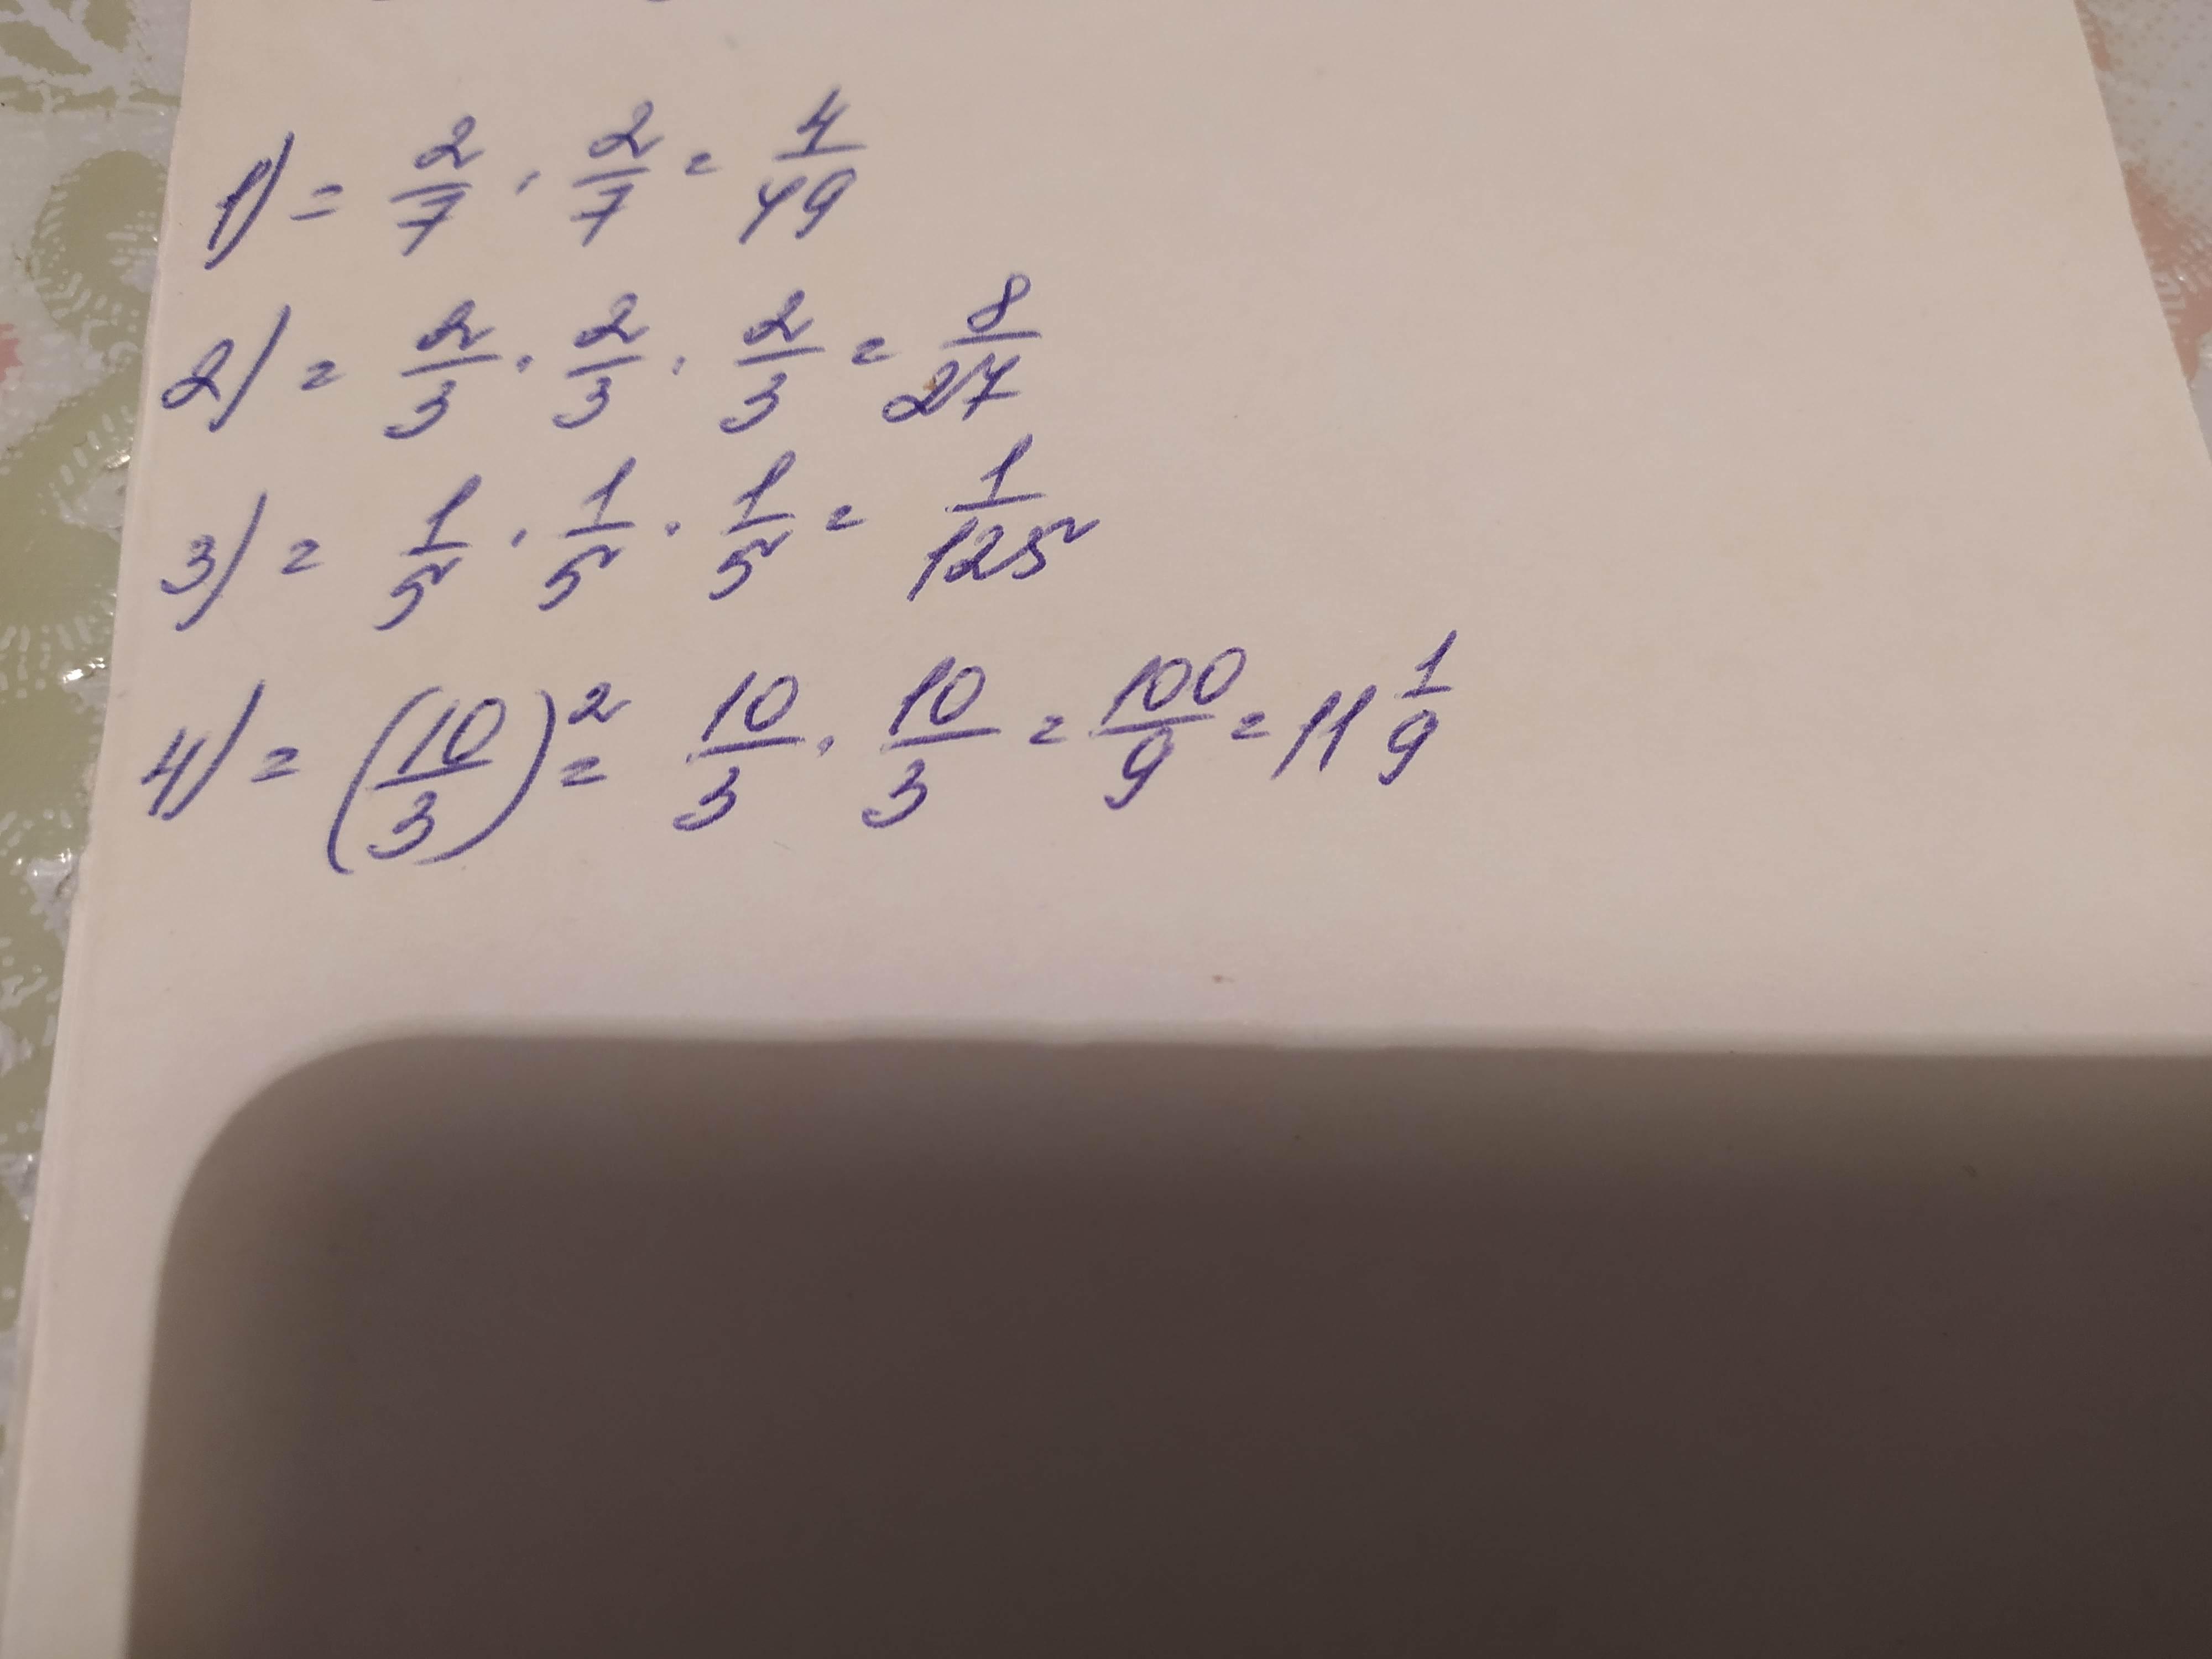 1) = 2/7 · 2/7 = 4/49
2) = 2/3 · 2/3 · 2/3 = 8/27
3) = 1/5 · 1/5 · 1/5 = 1/125
4) = (10/3)² = 10/3 · 10/3 = 100/9 = 11 1/9